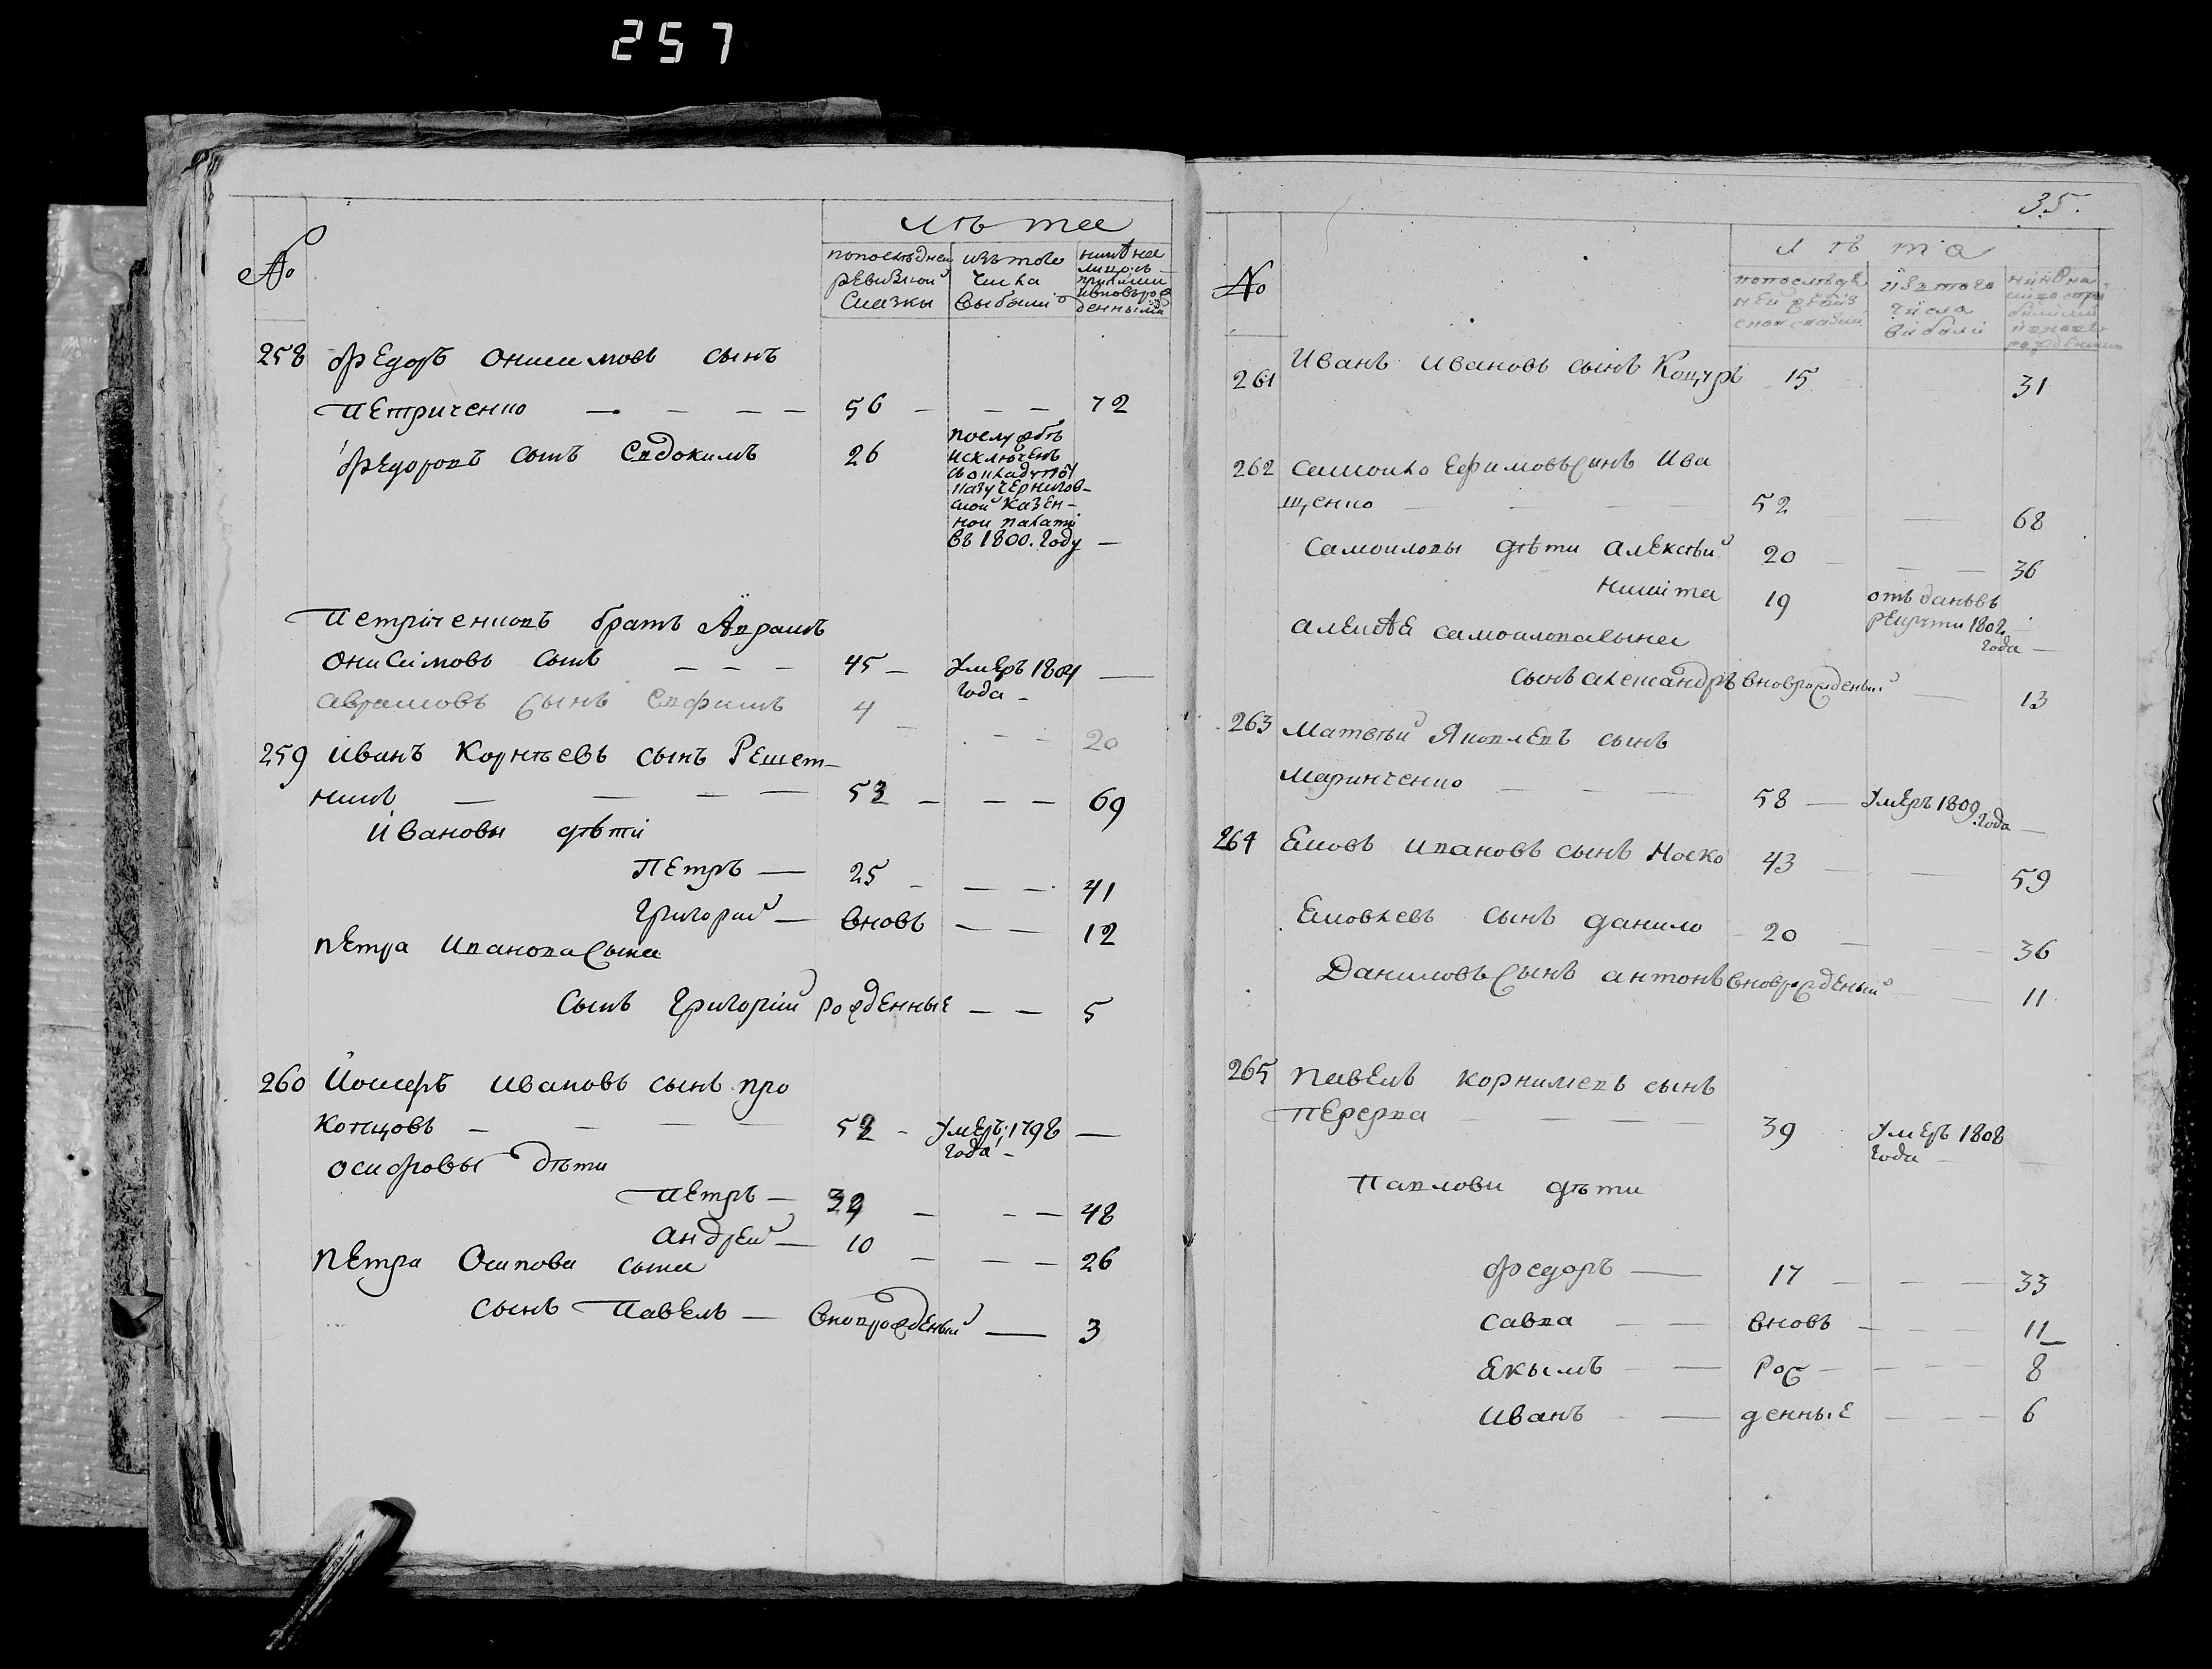 257
№
лѣта
попослѣдней
ревизкой
сказкы
изътого
числа
выбыли
258 Федоръ Онисимовъ сынъ
Петриченко — — — — 56 — — — 72
Федоровъ сынъ Евдокимъ 26
исключенъ
Чернигов-
ской казен-
ной палати
въ 1800. году —
Петриченковъ братъ Авраамъ
Онисимовъ сынъ — — — 45 — Умеръ 1804 —
года —
Аврамовъ сынъ Ефимъ 4 — — — 20
259 Иванъ Корнѣевъ сынъ Решет-
никъ — — — — 53 — — — 69
Ивановы дѣти
Петръ — 25 — — — 41
Григорий — вновь — — 12
Петра Иванова сына
сынъ Григорий рожденные — — 5
260 Йосифъ Ивановъ сынъ про
копцовъ — — — — 52 — Умеръ 1798 —
года —
Осифовы дѣти
Петръ — 32 — — — 48
Андрей — 10 — — — 26
Петра Осипова сына
сынъ Павелъ — вноврожденый — 3
35.
№
лѣта
попослѣд
ней ревиз
изтого
числа
вибыли
261 Иванъ Ивановъ сынъ Коцуръ 15 31
262 Самойло Ефимовъ сынъ Ива
щенко — — — — 52 — 68
Самоиловы дѣти Алексѣй 20 — — — 36
Никита 19 отъданъ въ
рекрути 1802
года —
Алексѣе Самоиловасына
сынъ Александръ вноврожденый — 13
263 Матвѣй Яковлевъ сынъ
Маринченко — — — 58 — Умеръ 1809
года —
264 Еаковъ Ивановъ сынъ Носко 43 — — 59
Еаковлевъ сынъ Данило 20 — — — 36
Даниловъ сынъ Антонъ вноврожденый — — 11
265 Павелъ Корнилиевъ сынъ
Перерва — — — 39 Умеръ 1808
года —
Павлови дѣти
Федоръ — 17 — — — 33
Савва — — вновь — — — 11
Екымъ — — рож — — — 8
Иванъ — — денные — — — 6